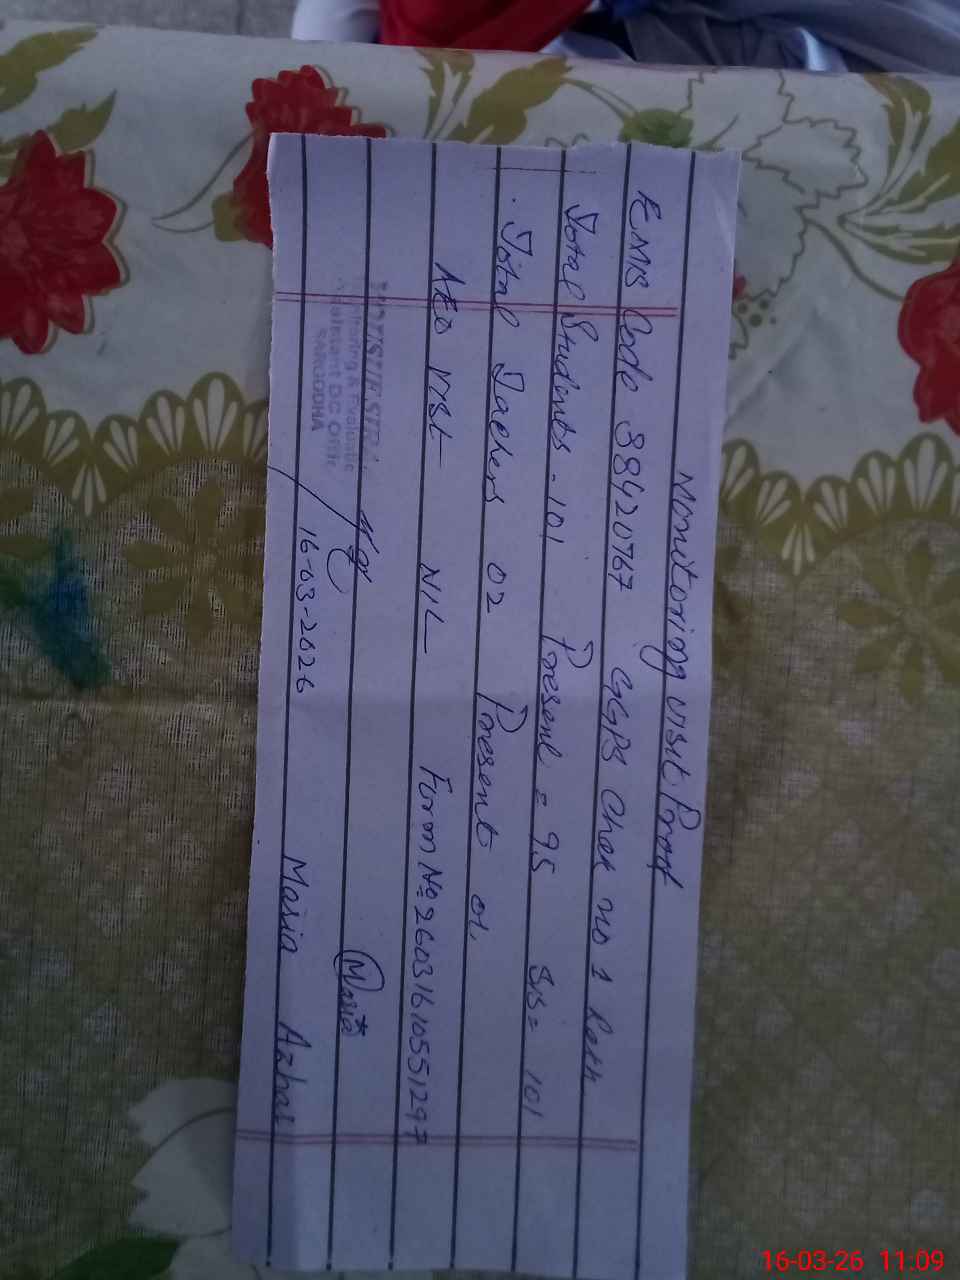 Monitoring visit Proof
EMIS Code 38420767 GGPS Chak no 1
Total Students - 101 Present = 95 SIS = 101
Total Teachers 02 Present 01.
AEO Visit NIL Form No: 26031610551297
Monitoring & Evaluation
Assistant DC Office
SARGODHA
Maria
16-03-2026 Maria Azhar
16-03-26 11:09